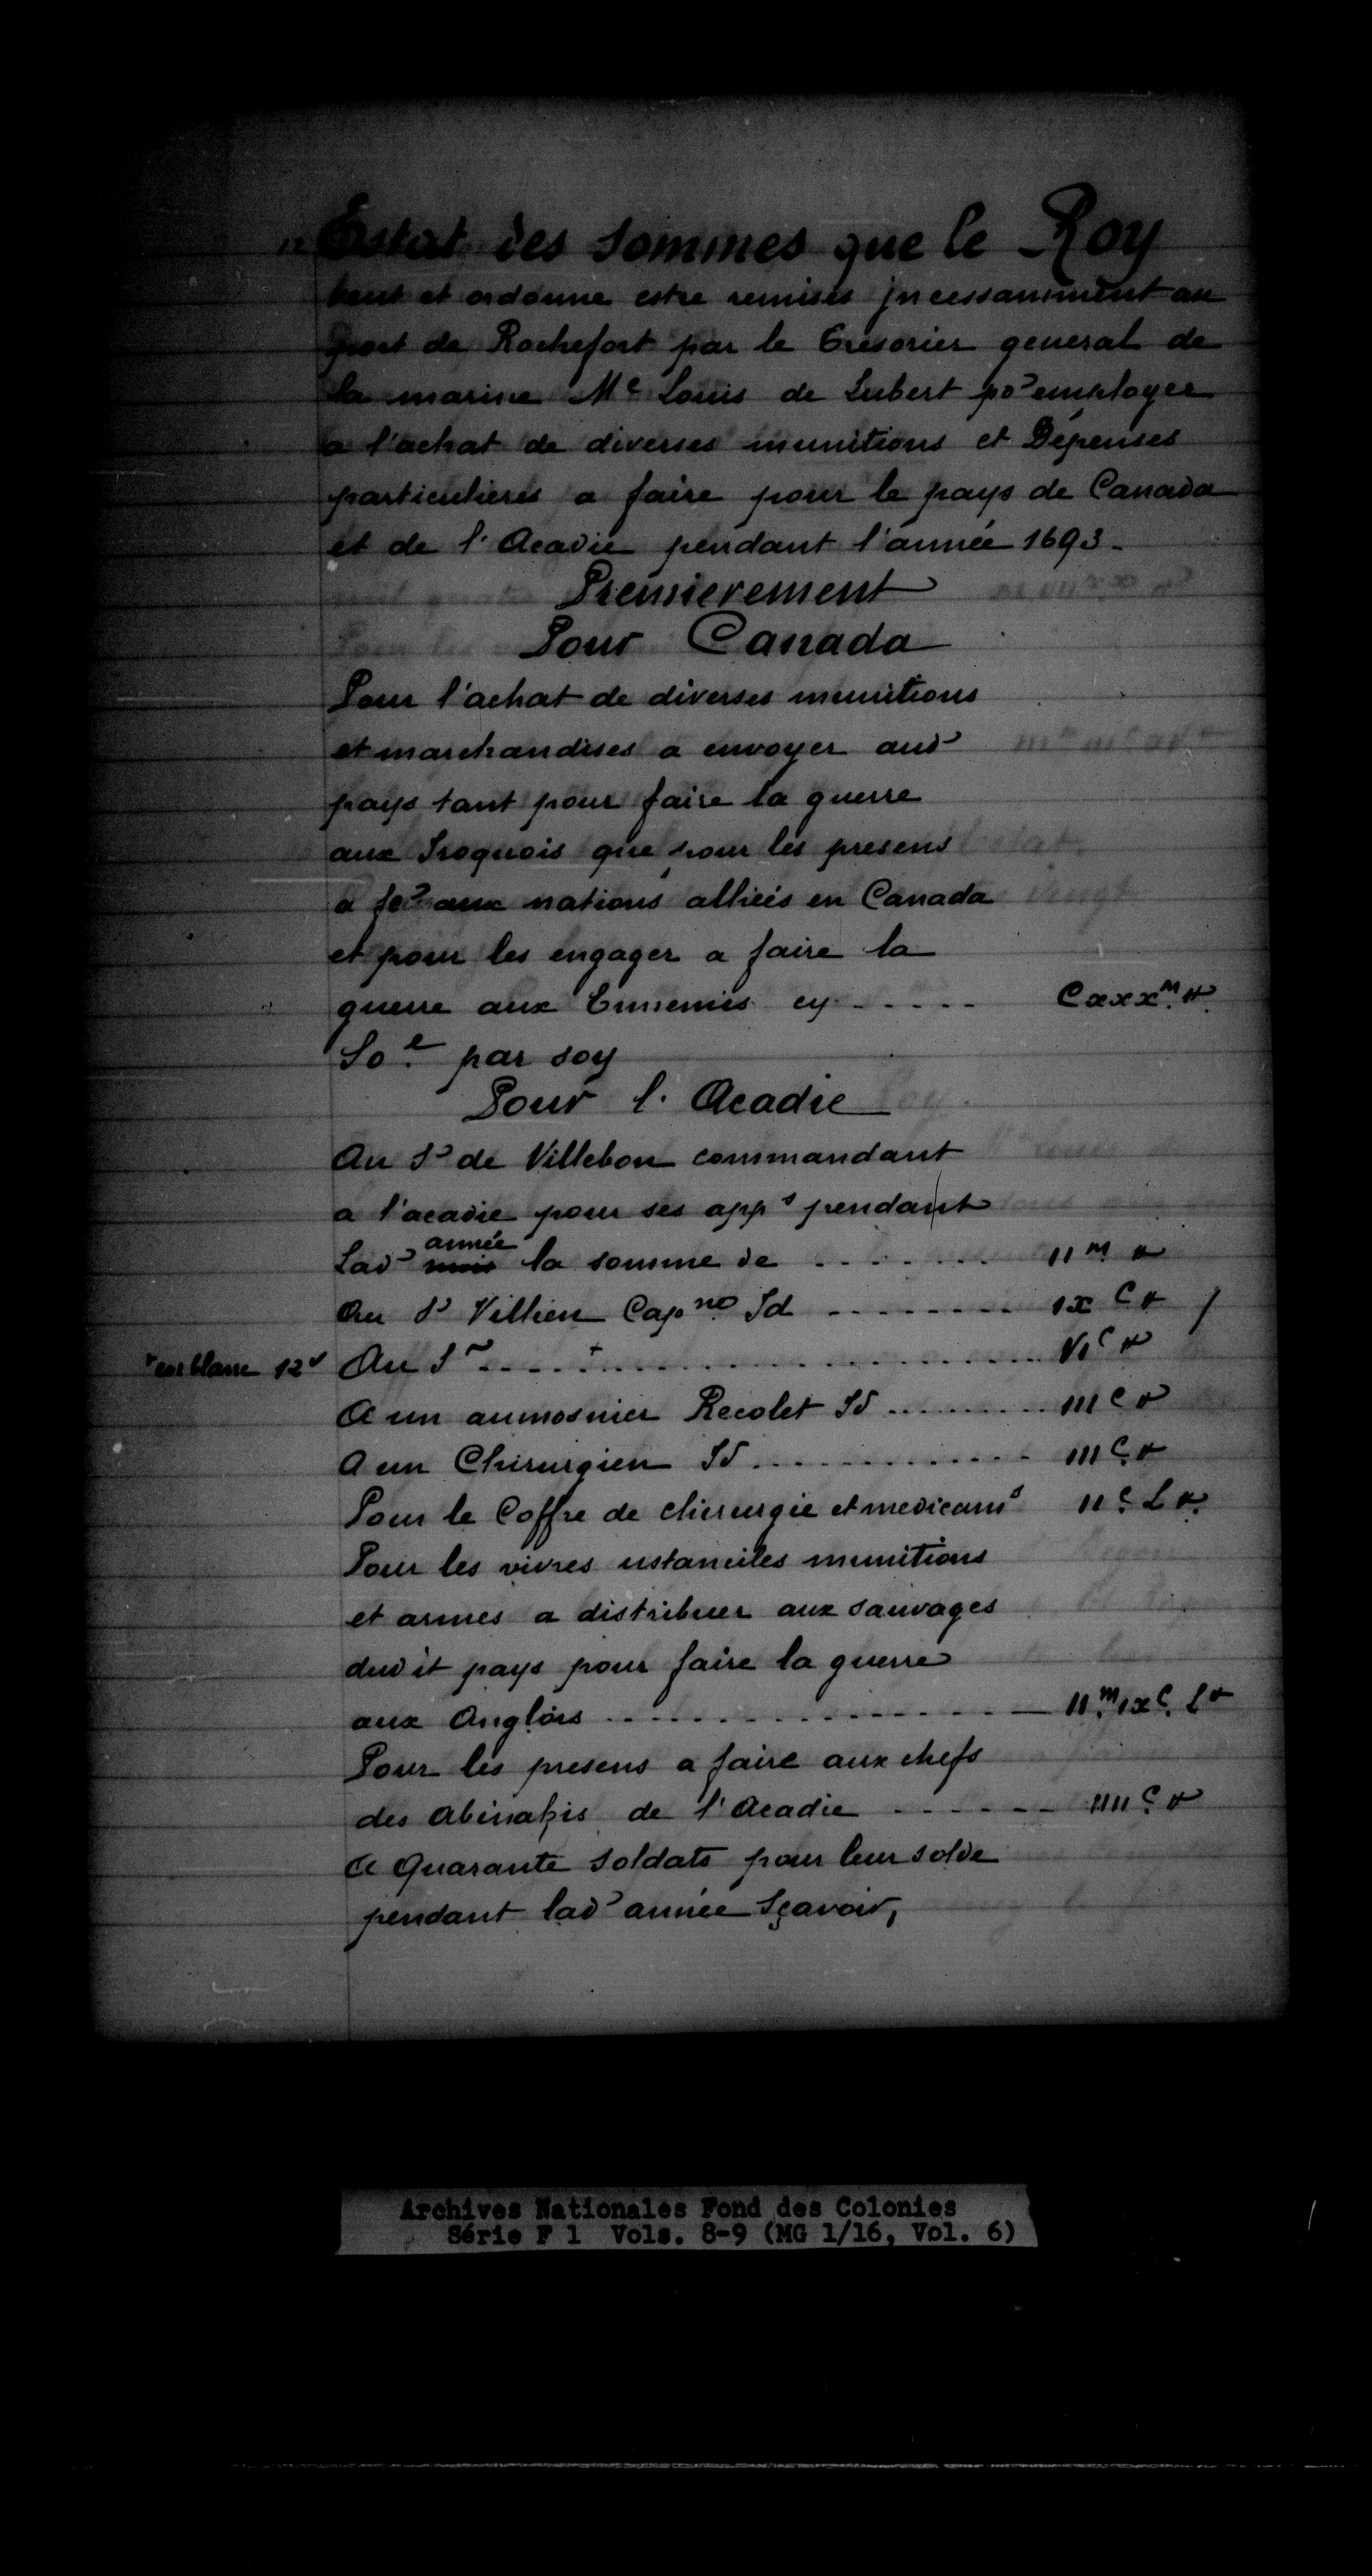 12 Estat des sommes que le Roy
veut et ordonne estre remises incessamment au
port de Rochefort par le Tresorier general de
la marine Me Louis de Lubert por employer
a l'achat de diverses munitions et Dépenses
particulieres a faire pour le pays de Canada
et de l'Acadie pendant l'année 1693.
Premierement
Pour Canada
Pour l'achat de diverses munitions
et marchandises a envoyer aud
pays tant pour faire la guerre
aux Iroquois que pour les presens
a fe aux nations alliées en Canada
et pour les engager a faire la
guerre aux Ennemis cy - - - - - Cxxx M. ₶.
So e par soy
Pour l'Acadie
Au Sr de Villebon commandant
a l'acadie pour ses apps pendant
Lad mois année la somme de . . . . . . . . II M ₶
Au Sr Villieu Capne Id - - - - - - - - IX C ₶ /
+ en blanc 12v Au Sr . . . . + . . . . . . . . . . . . VI C ₶
A un aumosnier Recolet Id . . . . . . . . III C ₶
A un Chirurgien Id . . . . . . . . . . . . III C. ₶
Pour le Coffre de chirurgie et medicams II C. L ₶.
Pour les vivres ustanciles munitions
et armes a distribuer aux sauvages
dudit pays pour faire la guerre
aux Anglois . . . . . . . . . . . . . . . II M. IX C. L ₶
Pour les presens a faire aux chefs
des Abinakis de l'Acadie - - - - - - IIII C. ₶
A Quarante soldats pour leur solde
pendant lad année Sçavoir,
Archives Nationales Fond des Colonies
Série F 1 Vols. 8-9 (MG 1/16, Vol. 6)